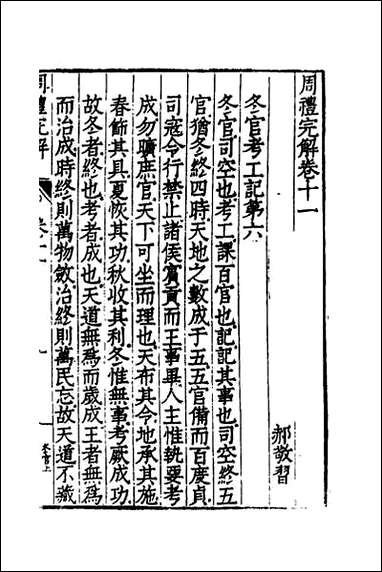 周禮完解卷十一
郝敬習
冬官考工記第六
冬官司空也考工課百官也記記其事也司空終五
官猶冬終四時天地之數成于五五官備而百度貞
司寇令行禁止諸侯賓貢而王事畢人主惟執要考
成勿曠庶官天下可坐而理也天布其令地承其施
春飾其具夏恢其功秋收其利冬惟無事考厥成功
故冬者終也考者成也天道無爲而歲成王者無爲
而治成時終則萬物斂治終則萬民忘故天道不藏
周禮完解
卷十一
冬官上